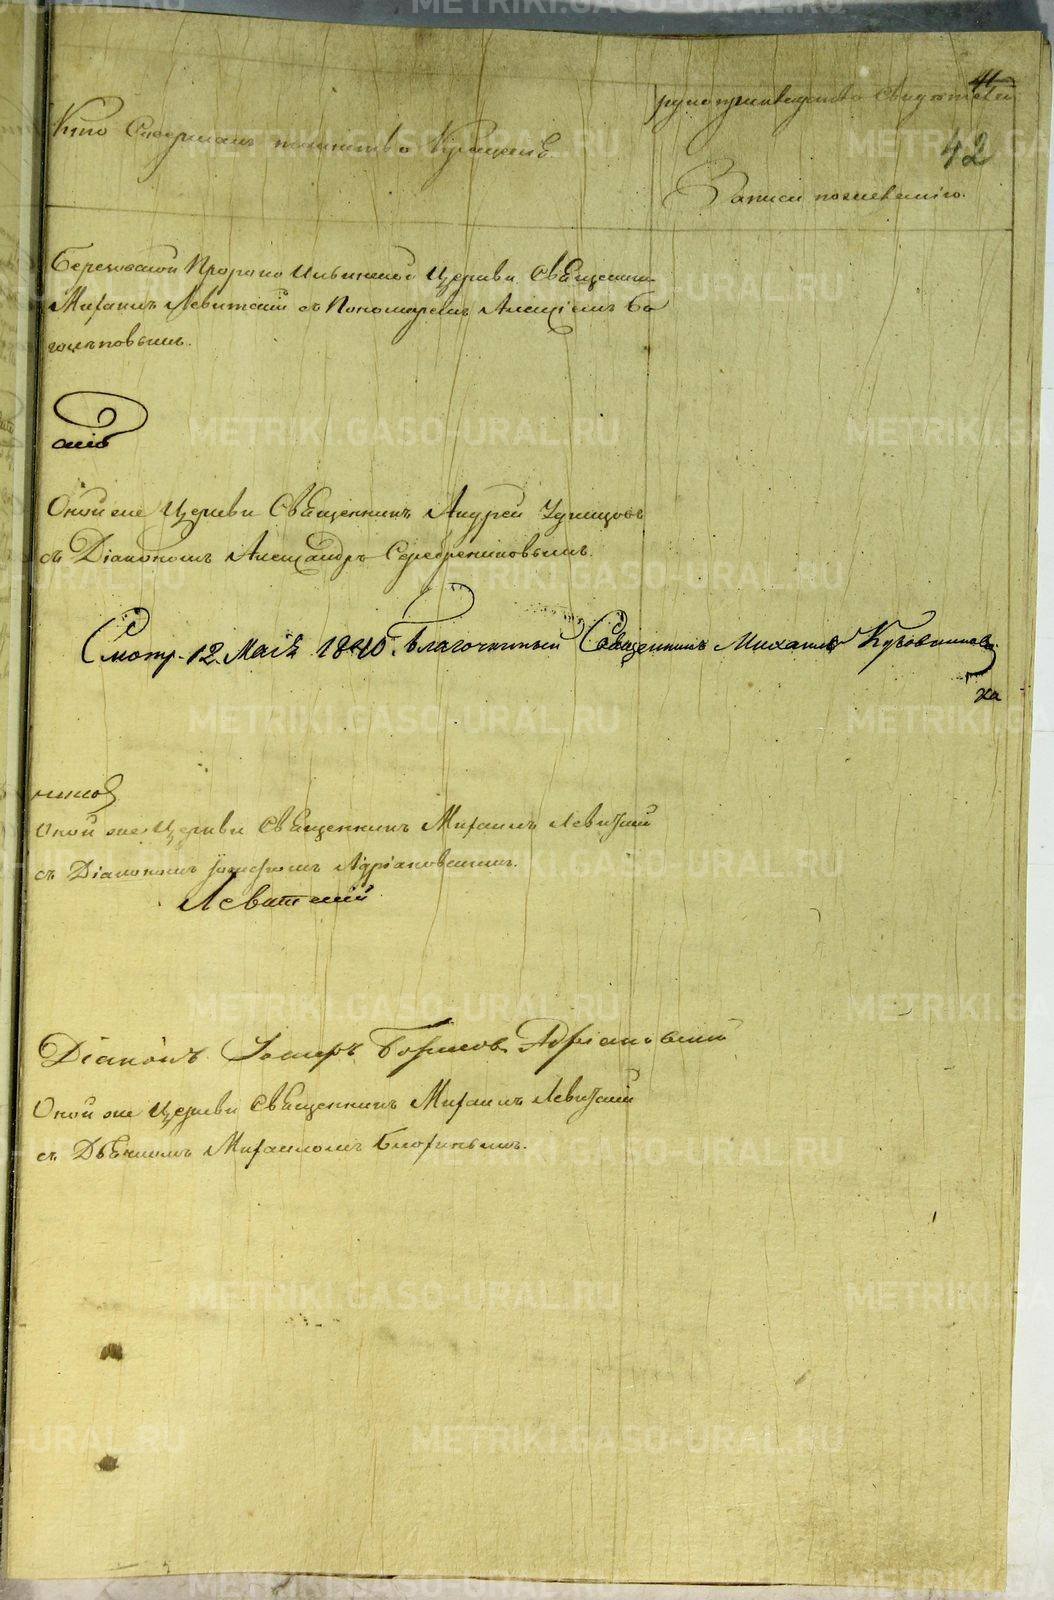 41
42
Кто Совершалъ таинство Крещенія
рукоприкладство Свидѣтелей
Записи по желанію.
Березовской Пророко Ильинской Церкви Священникъ
Михаилъ Левитскій съ Пономаремъ Алексіемъ Бо
гоцѣповымъ.
Оной же Церкви Священникъ Андрей Удинцовъ
съ Діакономъ Александръ Серебренниковымъ.
Смотр. 12. Маія 1840. Благочинный Священникъ Михаилъ
ка
Оной же Церкви Священникъ Михаилъ Левитскій
съ Діакономъ Адріановскимъ.
Левитскій
Діаконъ Борисовъ Адріановскій
Оной же Церкви Священникъ Михаилъ Левитскій
съ Дьячкомъ Михаиломъ
METRIKI.GASO-URAL.RU